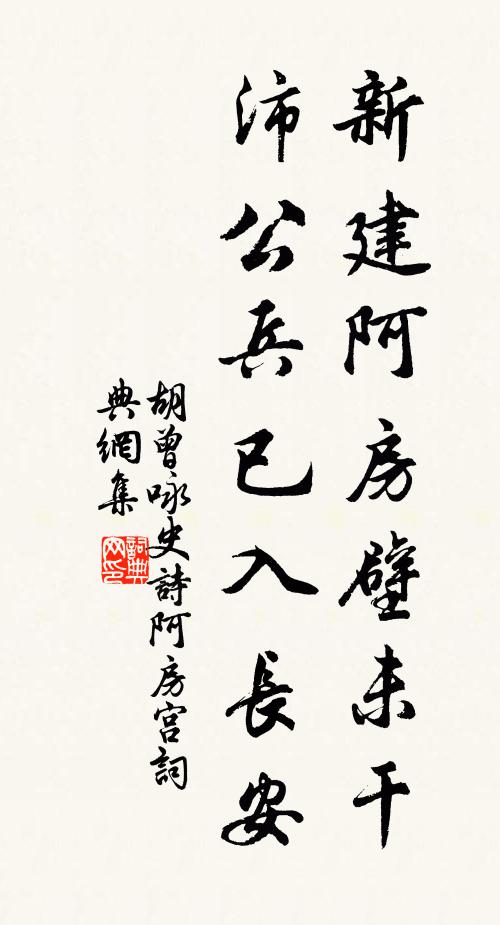 新建阿房壁未干
沛公兵已入長安
胡曾咏史詩阿房宮詞
典網集
詞典网印